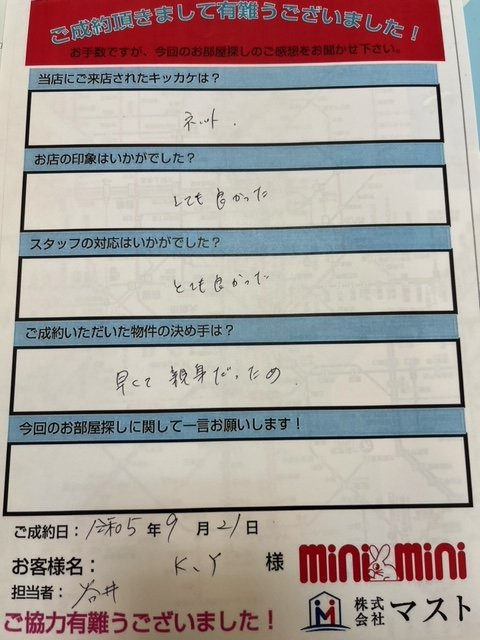 ご成約頂きまして有難うございました！
お手数ですが、今回のお部屋探しのご感想をお聞かせ下さい。
当店にご来店されたキッカケは？
ネット.
お店の印象はいかがでした？
とても良かった
スタッフの対応はいかがでした？
とても良かった
ご成約いただいた物件の決め手は？
早くて 親身だったため.
今回のお部屋探しに関して一言お願いします！
ご成約日：令和5年9月21日
お客様名： K、Y 様
mini mini
担当者：
株式会社マスト
ご協力有難うございました！